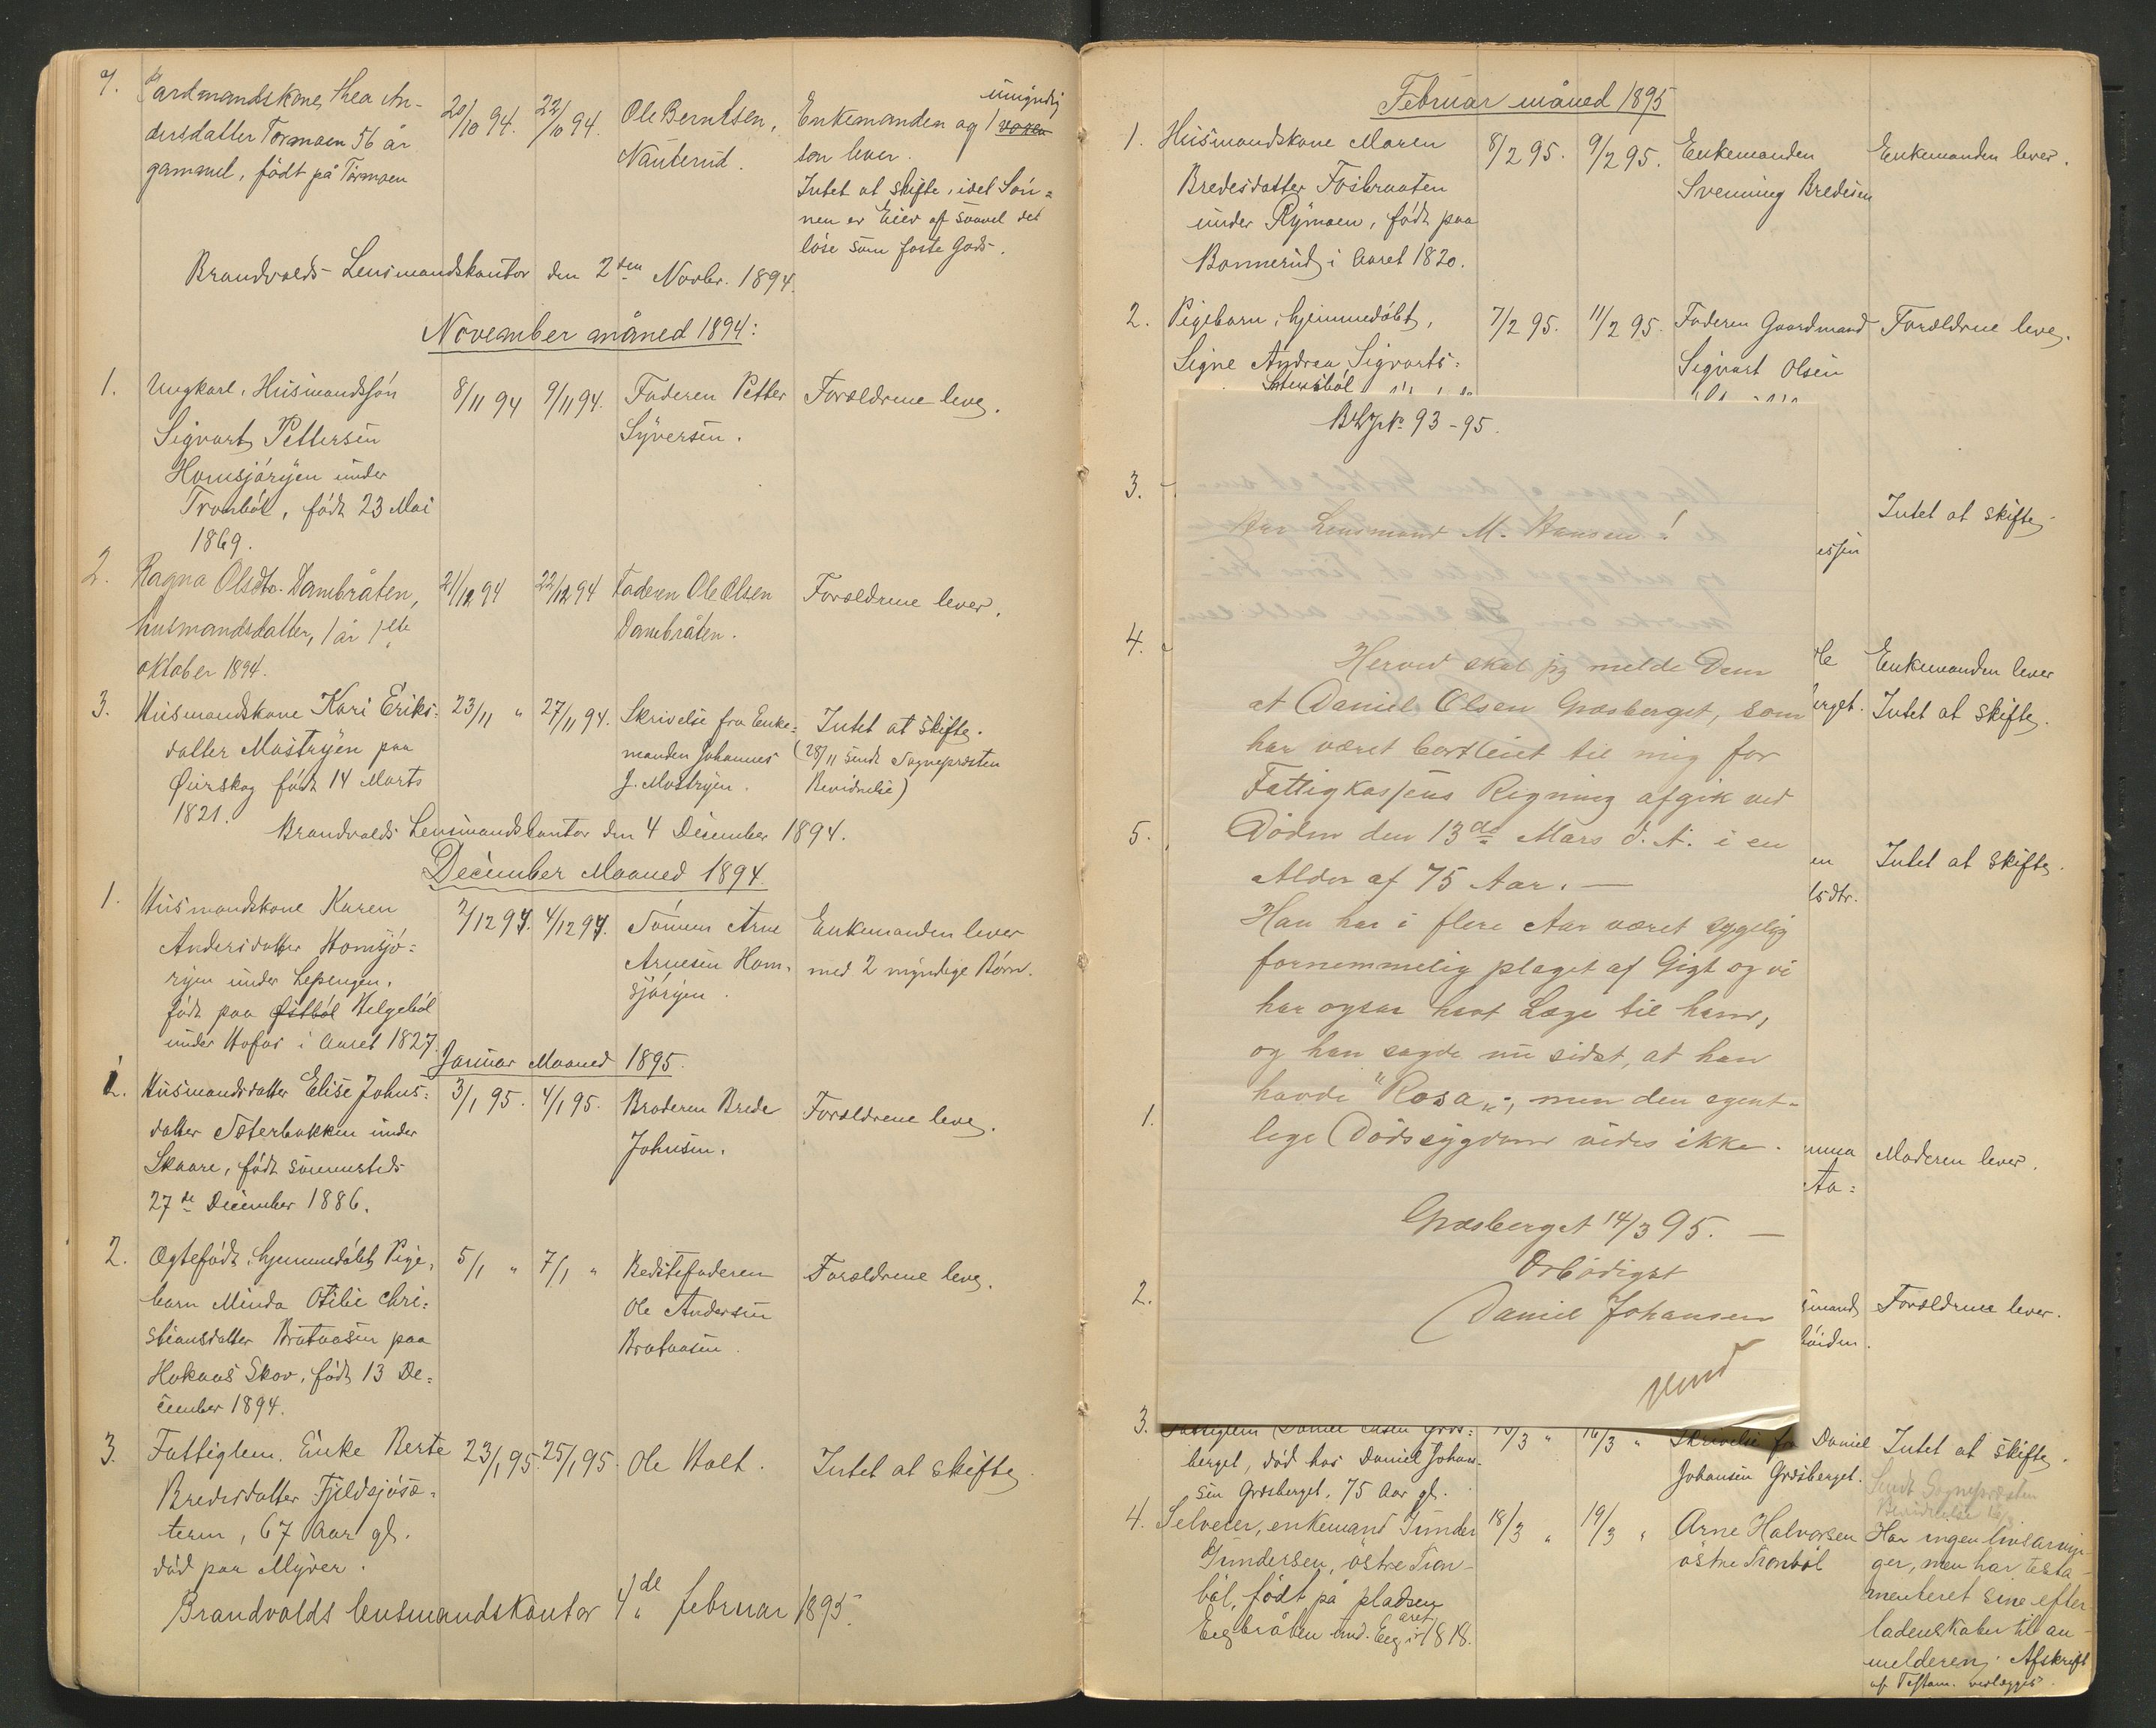 7. Gardmandskone Thea An-
dersdatter Tormoen 56 år
gammel, født på Tormoen
20/10 94. 22/10 94.
Ole Berntsen,
Nauterud.
umyndig
Enkemanden og 1 voxen
søn lever.
Intet at skifte, idet Søn=
nen er Eier af saavel det
løse som faste Gods.
Brandvolds Lensmandskontor den 2den Novbr. 1894.
November måned 1894:
1. Ungkarl, Husmandssøn
Sigvart Pettersen
Homsjøryen under
Tronbøl, født 23 Mai
1869.
8/11 94 9/11 94.
Faderen Petter
Syversen.
Forældrene leve.
2. Ragna Olsdtr. Dambråten,
husmandsdatter, 1 år 1ste
oktober 1894.
21/12 94 22/12 94
Faderen Ole Olsen
Dambråten.
Forældrene lever.
3. Husmandskone Kari Eriks=
datter Mostryen paa
Øierskog født 14 Marts
1821.
23/11 " 27/11 94.
Skrivelse fra Enke=
manden Johannes
J. Mostryen.
Intet at skifte.
(28/11 sendt Sognepræsten
Bevidnelse)
Brandvolds Lensmandskontor den 4 December 1894.
December Maaned 1894.
1. Husmandskone Karen
Andersdatter Homsjø=
ryen under Lepengen,
født paa Østbøl Helgebøl
under Hofos i Aaret 1827.
2/12 94. 4/12 94.
Sønnen Arne
Arnesen Hom-
sjøryen.
Enkemanden lever
med 2 myndige Børn.
Januar Maaned 1895.
1. Husmandsdatter Elise Johns=
datter Sæterbakken under
Skaare, født sammesteds
27de December 1886.
3/1 95. 4/1 95.
Broderen Brede
Johnsen.
Forældrene leve.
2. Ægtefødt, hjemmedøbt Pige-
barn Minda Otilie Chri=
stiansdatter Brataasen paa
Hokaas Skov, født 13 De=
cember 1894.
5/1 " 7/1 "
Bedstefaderen
Ole Andersen
Brataasen.
Forældrene leve.
3. Fattiglem. Enke Berte
Bredesdatter Fjeldsjøsæ=
teren, 67 Aar gl.
død paa Myrer.
23/1 95. 25/1 95.
Ole Holt.
Intet at skifte
Brandvolds lensmandskontor 4de februar 1895.
Februar måned 1895
1. Husmandskone Maren
Bredesdatter Fosbraaten
under Rymoen, født paa
Bonnerud i Aaret 1820.
8/2 95. 9/2 95.
Enkemanden
Svenning Bredesen
Enkemanden lever.
2. Pigebarn, hjemmedøbt,
Signe Andrea Sigvarts=
7/2 95. 11/2 95.
Faderen Gaardmand
Sigvart Olsen
Forældrene leve.
3.
essen
Intet at skifte
4.
Ole
erget.
Enkemanden lever
Intet at skifte.
5.
en
lsdtr.
Intet at skifte.
1.
mma
Aa=
Moderen lever.
2.
smand
høiden.
Forældrene lever.
93-95.
Hr Lensmand M. Hansen!
Herved skal jeg melde Dem
at Daniel Olsen Græsberget, som
har været bortleiet til mig for
Fattigkassens Regning afgik ved
Døden den 13de Mars d. A. i en
Alder af 75 Aar.—
Han har i flere Aar været sygelig
fornemmelig plaget af Gigt og vi
har ogsaa havt Læge til ham,
og han sagde nu sidst, at han
havde "Rosa", men den egent-
lige Dødssygdom vides ikke.
Græsberget 14/3 95.—
Ærbødigst
Daniel Johansen
vend
3. Fattiglem Daniel Olsen Græs=
berget, død hos Daniel Johan-
sen Græsberget, 75 Aar gl.
13/3 " 16/3 "
Skrivelse fra Daniel
Johansen Græsberget.
Intet at skifte.
Sendt Sognepræsten
Bevidnelse 16/3
4. Selveier, enkemand Gunder
Gundersen, østre Tron-
bøl, født på pladsen
Eegbråten und. Eeg i året 1818.
18/3 " 19/3 "
Arne Halvorsen
østre Tronbøl
Har ingen livsarvin-
ger, men har testa-
menteret sine efter
ladenskaber til an-
melderen. Afskrift
af Testam. vedlægges.